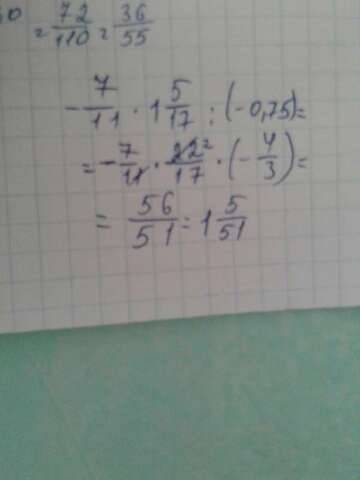 = 72/110 = 36/55
- 7/11 · 1 5/17 : (-0,75)=
= - 7/11 · 22²/17 · (- 4/3)=
= 56/51 = 1 5/51